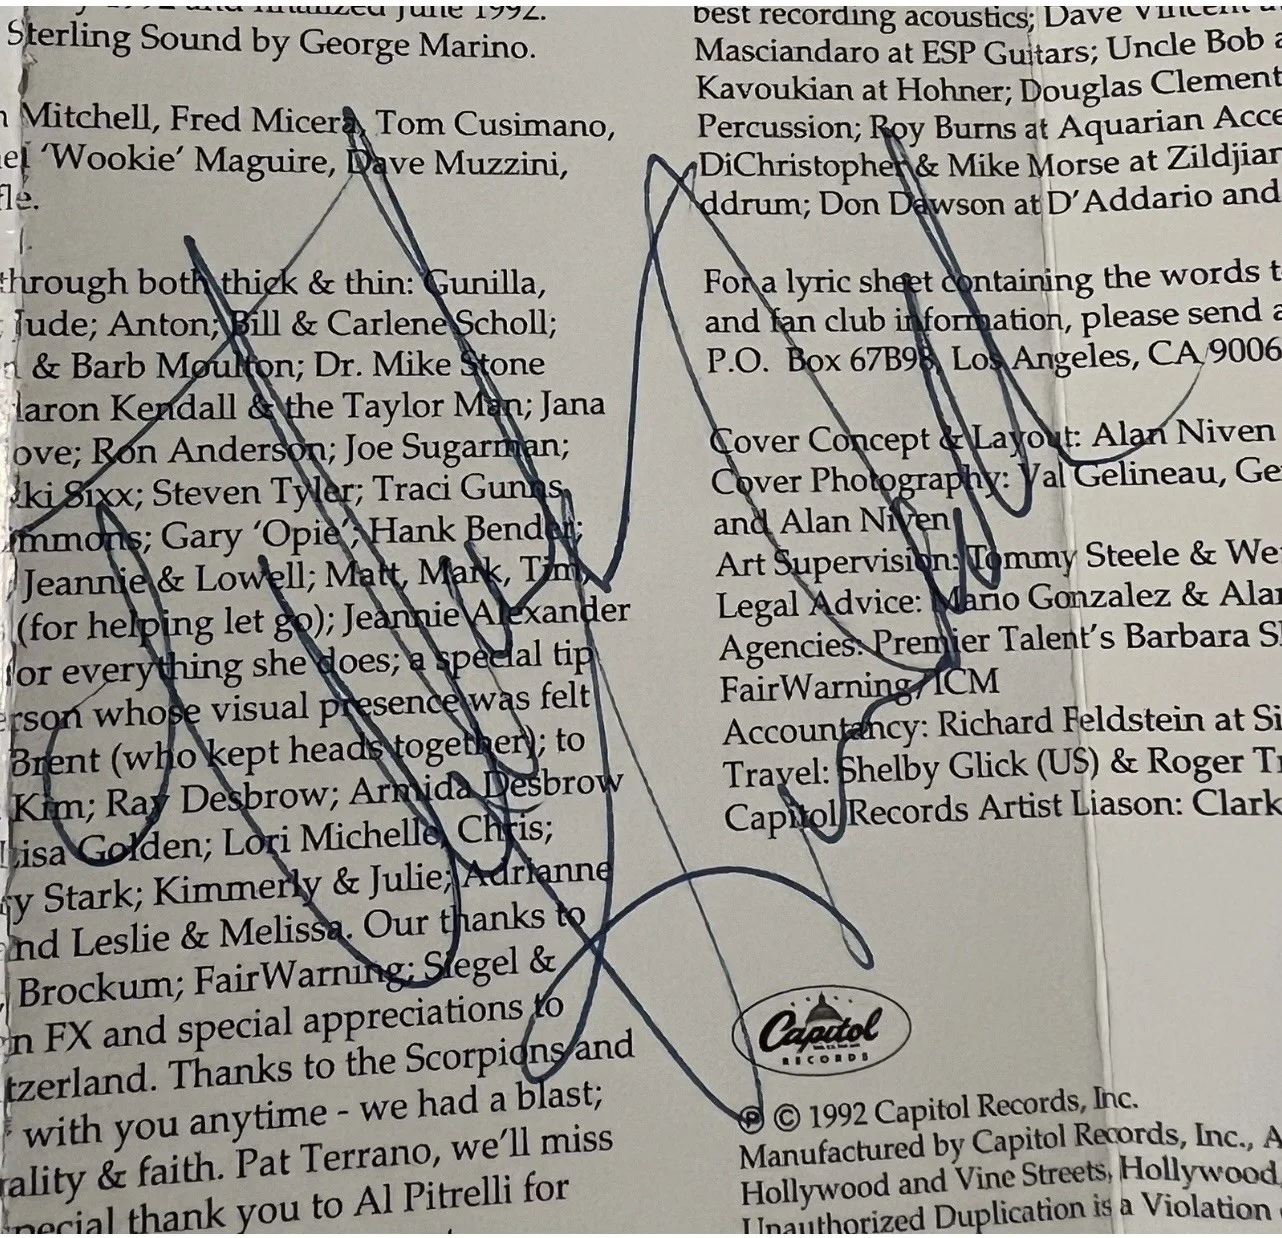 1992 and finalized June 1992.
Sterling Sound by George Marino.
Mitchell, Fred Micera, Tom Cusimano,
'Wookie' Maguire, Dave Muzzini,
fle.
through both thick & thin: Gunilla,
Jude; Anton; Bill & Carlene Scholl;
& Barb Moulton; Dr. Mike Stone
Kendall & the Taylor Man; Jana
ove; Ron Anderson; Joe Sugarman;
Sixx; Steven Tyler; Traci Gunns,
mmons; Gary 'Opie'; Hank Bender;
Jeannie & Lowell; Matt, Mark, Tim,
(for helping let go); Jeannie Alexander
for everything she does; a special tip
erson whose visual presence was felt
Brent (who kept heads together); to
Kim; Ray Desbrow; Armida Desbrow
Lisa Golden; Lori Michelle, Chris;
y Stark; Kimmerly & Julie; Adrianne
nd Leslie & Melissa. Our thanks to
Brockum; FairWarning; Siegel &
n FX and special appreciations to
tzerland. Thanks to the Scorpions and
with you anytime - we had a blast;
rality & faith. Pat Terrano, we'll miss
special thank you to Al Pitrelli for
best recording acoustics; Dave Vincent
Masciandaro at ESP Guitars; Uncle Bob
Kavoukian at Hohner; Douglas Clement
Percussion; Roy Burns at Aquarian Acce
DiChristopher & Mike Morse at Zildjian
ddrum; Don Dawson at D'Addario and
For a lyric sheet containing the words t
and fan club information, please send a
P.O. Box 67B98, Los Angeles, CA 9006
Cover Concept & Layout: Alan Niven
Cover Photography: Val Gelineau, Ge
and Alan Niven
Art Supervision: Tommy Steele & We
Legal Advice: Mario Gonzalez & Alan
Agencies: Premier Talent's Barbara S
FairWarning/ICM
Accountancy: Richard Feldstein at Si
Travel: Shelby Glick (US) & Roger Tr
Capitol Records Artist Liason: Clark
Capitol
RECORDS
℗ © 1992 Capitol Records, Inc.
Manufactured by Capitol Records, Inc., A
Hollywood and Vine Streets, Hollywood,
Unauthorized Duplication is a Violation